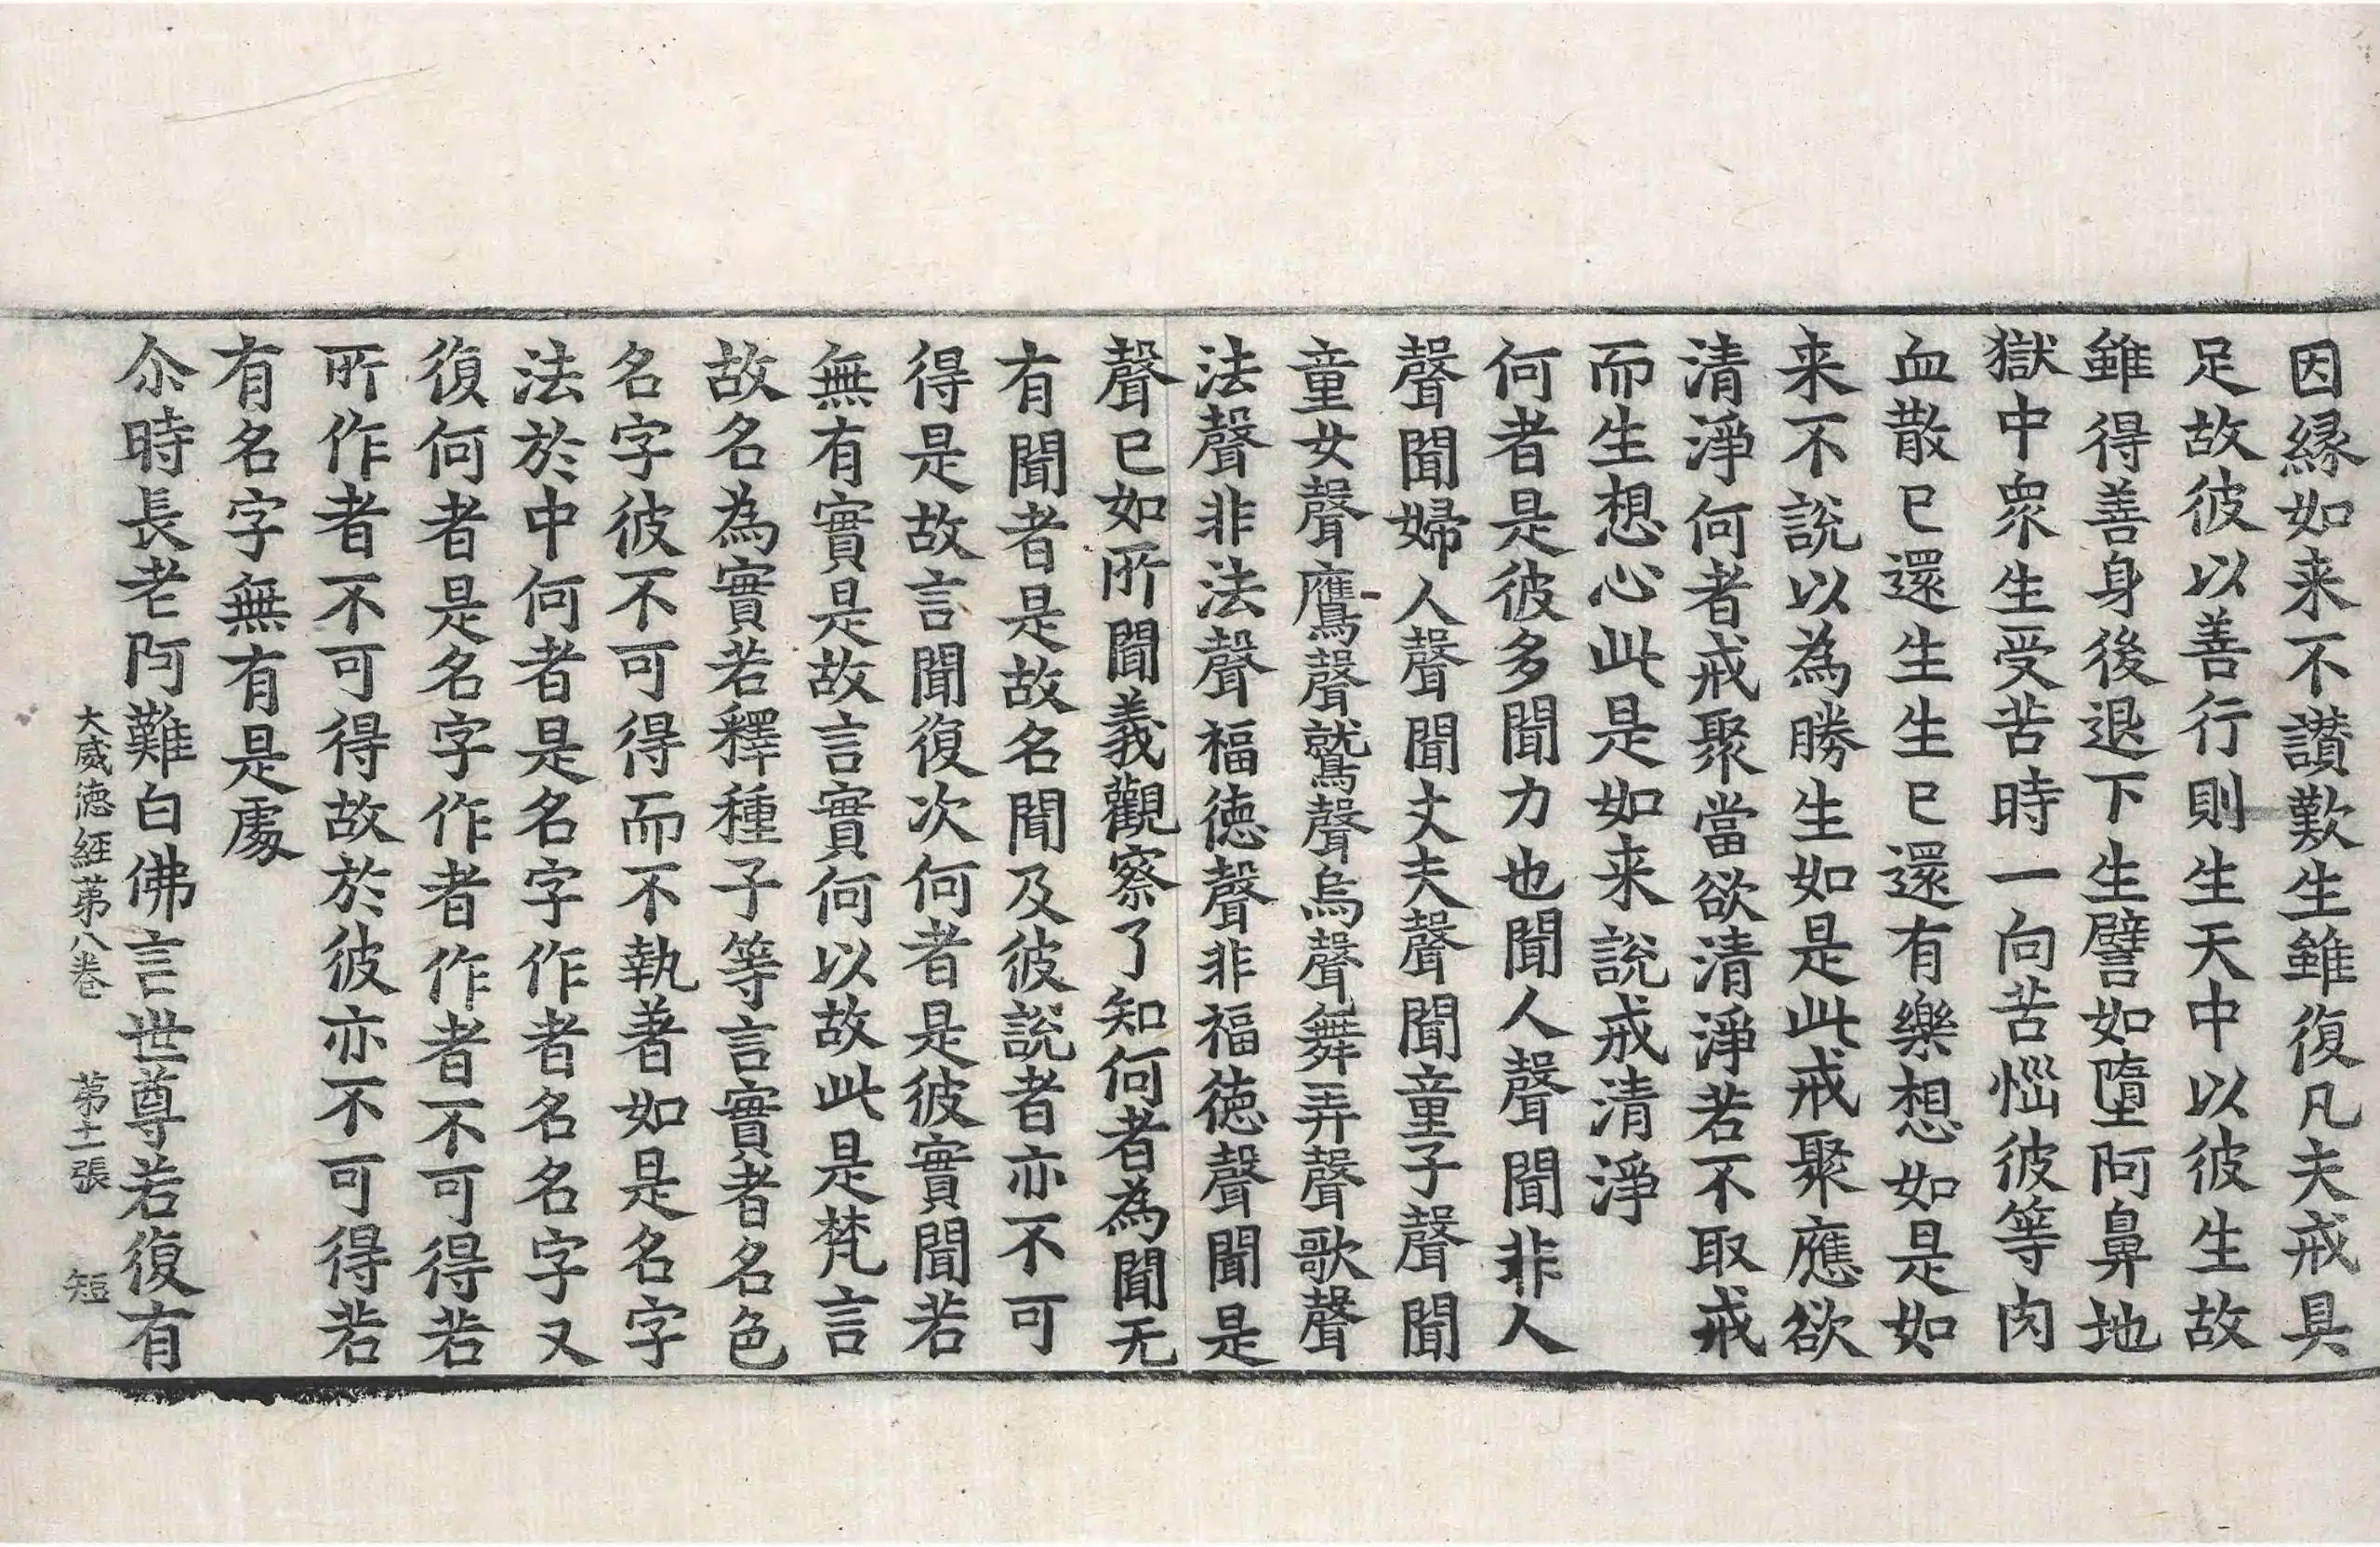 因縁如来不讃歎生雖復凡夫戒具
足故彼以善行則生天中以彼生故
雖得善身後退下生譬如墮阿鼻地
獄中衆生受苦時一向苦惱彼等肉
血散已還生生已還有樂想如是如
来不說以為勝生如是此戒聚應欲
清淨何者戒聚當欲清淨若不取戒
而生想心此是如来說戒清淨
何者是彼多聞力也聞人聲聞非人
聲聞婦人聲聞丈夫聲聞童子聲聞
童女聲鷹聲鷲聲烏聲舞弄聲歌聲
法聲非法聲福徳聲非福徳聲聞是
聲已如所聞義觀察了知何者為聞无
有聞者是故名聞及彼說者亦不可
得是故言聞復次何者是彼實聞若
無有實是故言實何以故此是梵言
故名為實若釋種子等言實者名色
名字彼不可得而不執著如是名字
法於中何者是名字作者名名字又
復何者是名字作者作者不可得若
所作者不可得故於彼亦不可得若
有名字無有是處
尒時長老阿難白佛言世尊若復有
大威徳經苐八卷 苐十一張 短